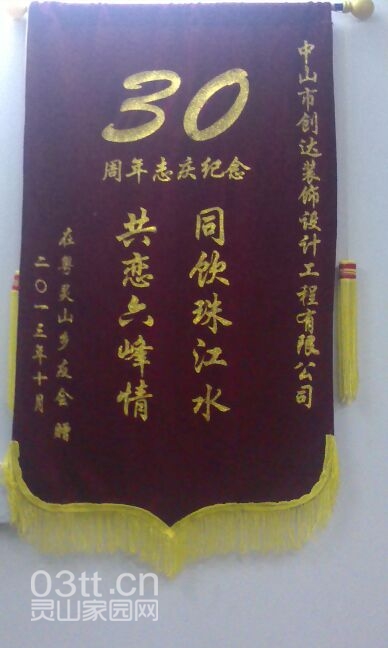 中山市创达装饰设计工程有限公司
30
周年志庆纪念
同饮珠江水
共恋六峰情
在粤灵山乡友会 赠
二〇一三年十月
03tt.cn
灵山家园网